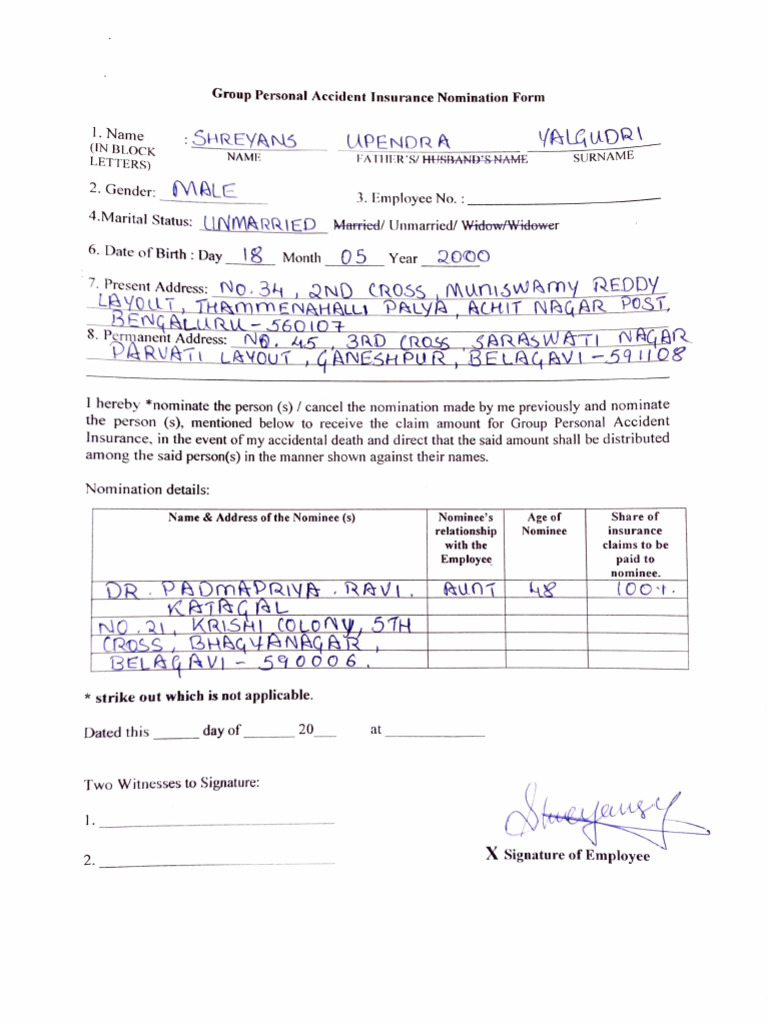 Group Personal Accident Insurance Nomination Form
1. Name : SHREYANS UPENDRA YALGUDRI
(IN BLOCK LETTERS) NAME FATHER'S/ HUSBAND'S NAME SURNAME
2. Gender: MALE 3. Employee No. :
4.Marital Status: UNMARRIED Married/ Unmarried/ Widow/Widower
6. Date of Birth : Day 18 Month 05 Year 2000
7. Present Address: NO. 34, 2ND CROSS, MUNISWAMY REDDY
LAYOUT, THAMMENAHALLI PALYA, ACHIT NAGAR POST,
BENGALURU - 560107
8. Permanent Address: NO. 45, 3RD CROSS, SARASWATI NAGAR
PARVATI LAYOUT, GANESHPUR, BELAGAVI - 591108
I hereby *nominate the person (s) / cancel the nomination made by me previously and nominate
the person (s), mentioned below to receive the claim amount for Group Personal Accident
Insurance, in the event of my accidental death and direct that the said amount shall be distributed
among the said person(s) in the manner shown against their names.
Nomination details:
Name & Address of the Nominee (s) Nominee's relationship with the Employee Age of Nominee Share of insurance claims to be paid to nominee.
DR. PADMAPRIYA. RAVI. AUNT 48 100%.
KATAGAL
NO. 21, KRISHI COLONY, 5TH
CROSS, BHAGYANAGAR,
BELAGAVI - 590006.
* strike out which is not applicable.
Dated this day of 20 at
Two Witnesses to Signature:
1.
2.
Shreyansy
X Signature of Employee